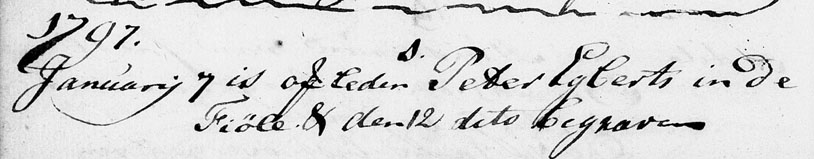 1797.
January 7 is of leden s. Peter Egberts in de
Fiöle & den 12 dito begraven